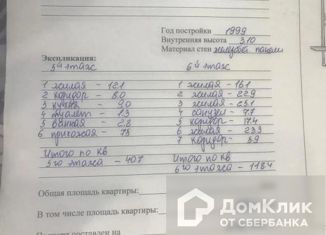 Год постройки 1999
Внутренняя высота 3.10
Материал стен железобет. панели
Экспликация:
5й этаж 6й этаж
1 жилая - 12.1 1 жилая - 16.1
2 коридор - 8.0 2 жилая - 22.9
3 кухня - 9.0 3 жилая - 23.1
4 туалет - 1.3 4 санузел - 7.8
5 ванная - 2.8 5 коридор - 17.4
6 прихожая - 7.5 6 жилая - 23.3
7 коридор -
Итого по кв Итого по кв
5го этажа - 40.7 6го этажа - 118.4
Общая площадь квартиры:
В том числе площадь квартиры:
ДОМКЛИК
ОТ СБЕРБАНКА